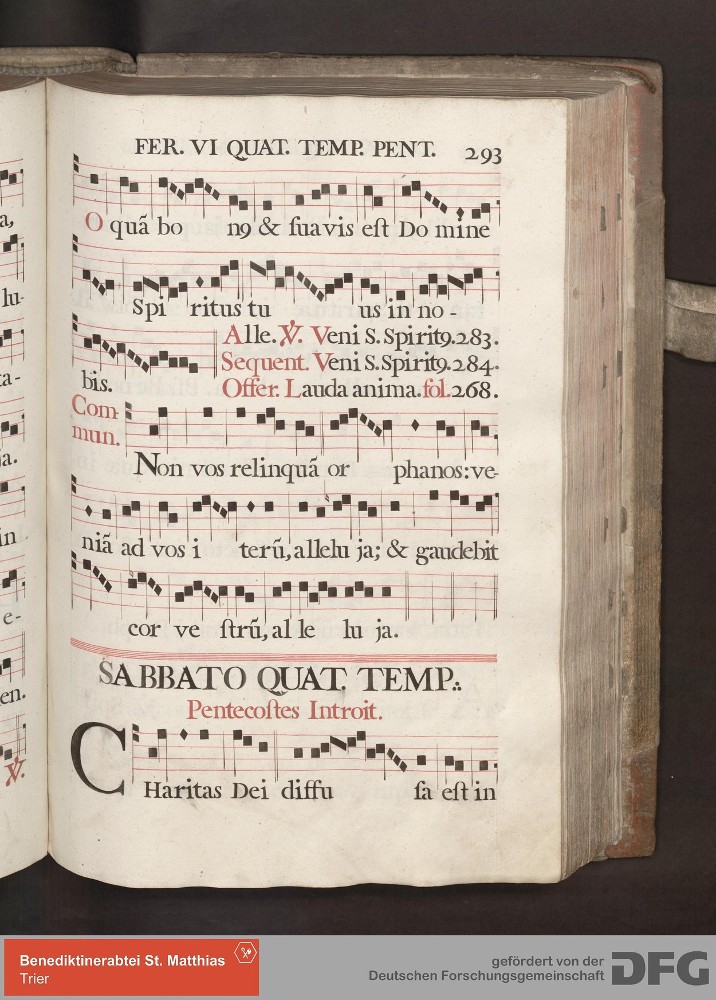 FER. VI QUAT. TEMP. PENT. 293
O quã bo n9 & suavis est Do mine
Spi ritus tu us in no
Alle. ℣. Veni S. Spirit9. 283.
Sequent. Veni S. Spirit9. 284.
bis. Offer. Lauda anima. fol. 268.
Com-
mun.
Non vos relinquã or phanos: ve-
niã ad vos i terũ, allelu ja; & gaudebit
cor ve strũ, al le lu ja.
SABBATO QUAT. TEMP.
Pentecostes Introit.
CHaritas Dei diffu sa est in
a,
lu-
ta-
ja.
in
e-
en.
℣.
Benediktinerabtei St. Matthias
Trier
gefördert von der
Deutschen Forschungsgemeinschaft DFG